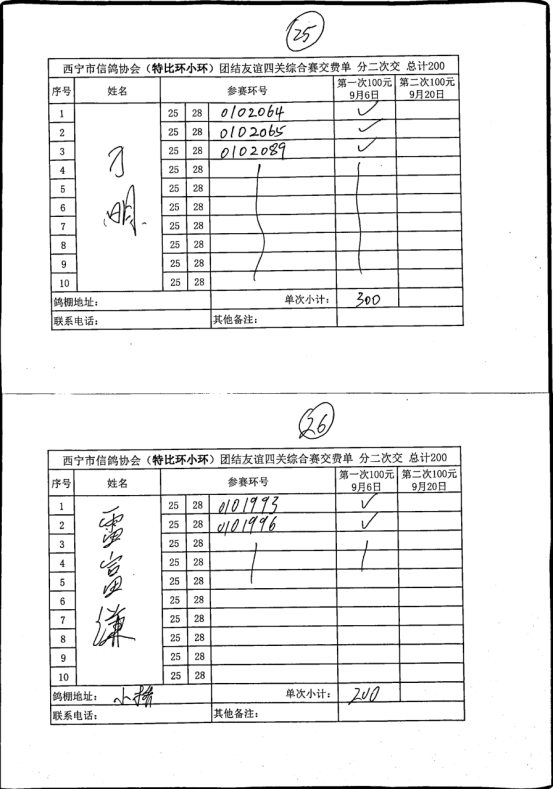 25
西宁市信鸽协会（特比环小环）团结友谊四关综合赛交费单 分二次交 总计200
序号 姓名 参赛环号 第一次100元 9月6日 第二次100元 9月20日
1 25 28 0102064 ✓
2 25 28 0102065 ✓
3 25 28 0102089 ✓
4 25 28
5 25 28
6 25 28
7 25 28
8 25 28
9 25 28
10 25 28
明
鸽棚地址： 单次小计： 300
联系电话： 其他备注：
26
西宁市信鸽协会（特比环小环）团结友谊四关综合赛交费单 分二次交 总计200
序号 姓名 参赛环号 第一次100元 9月6日 第二次100元 9月20日
1 25 28 0101993 ✓
2 25 28 0101996 ✓
3 25 28
4 25 28
5 25 28
6 25 28
7 25 28
8 25 28
9 25 28
10 25 28
雷富谦
鸽棚地址： 小桥 单次小计： 200
联系电话： 其他备注：